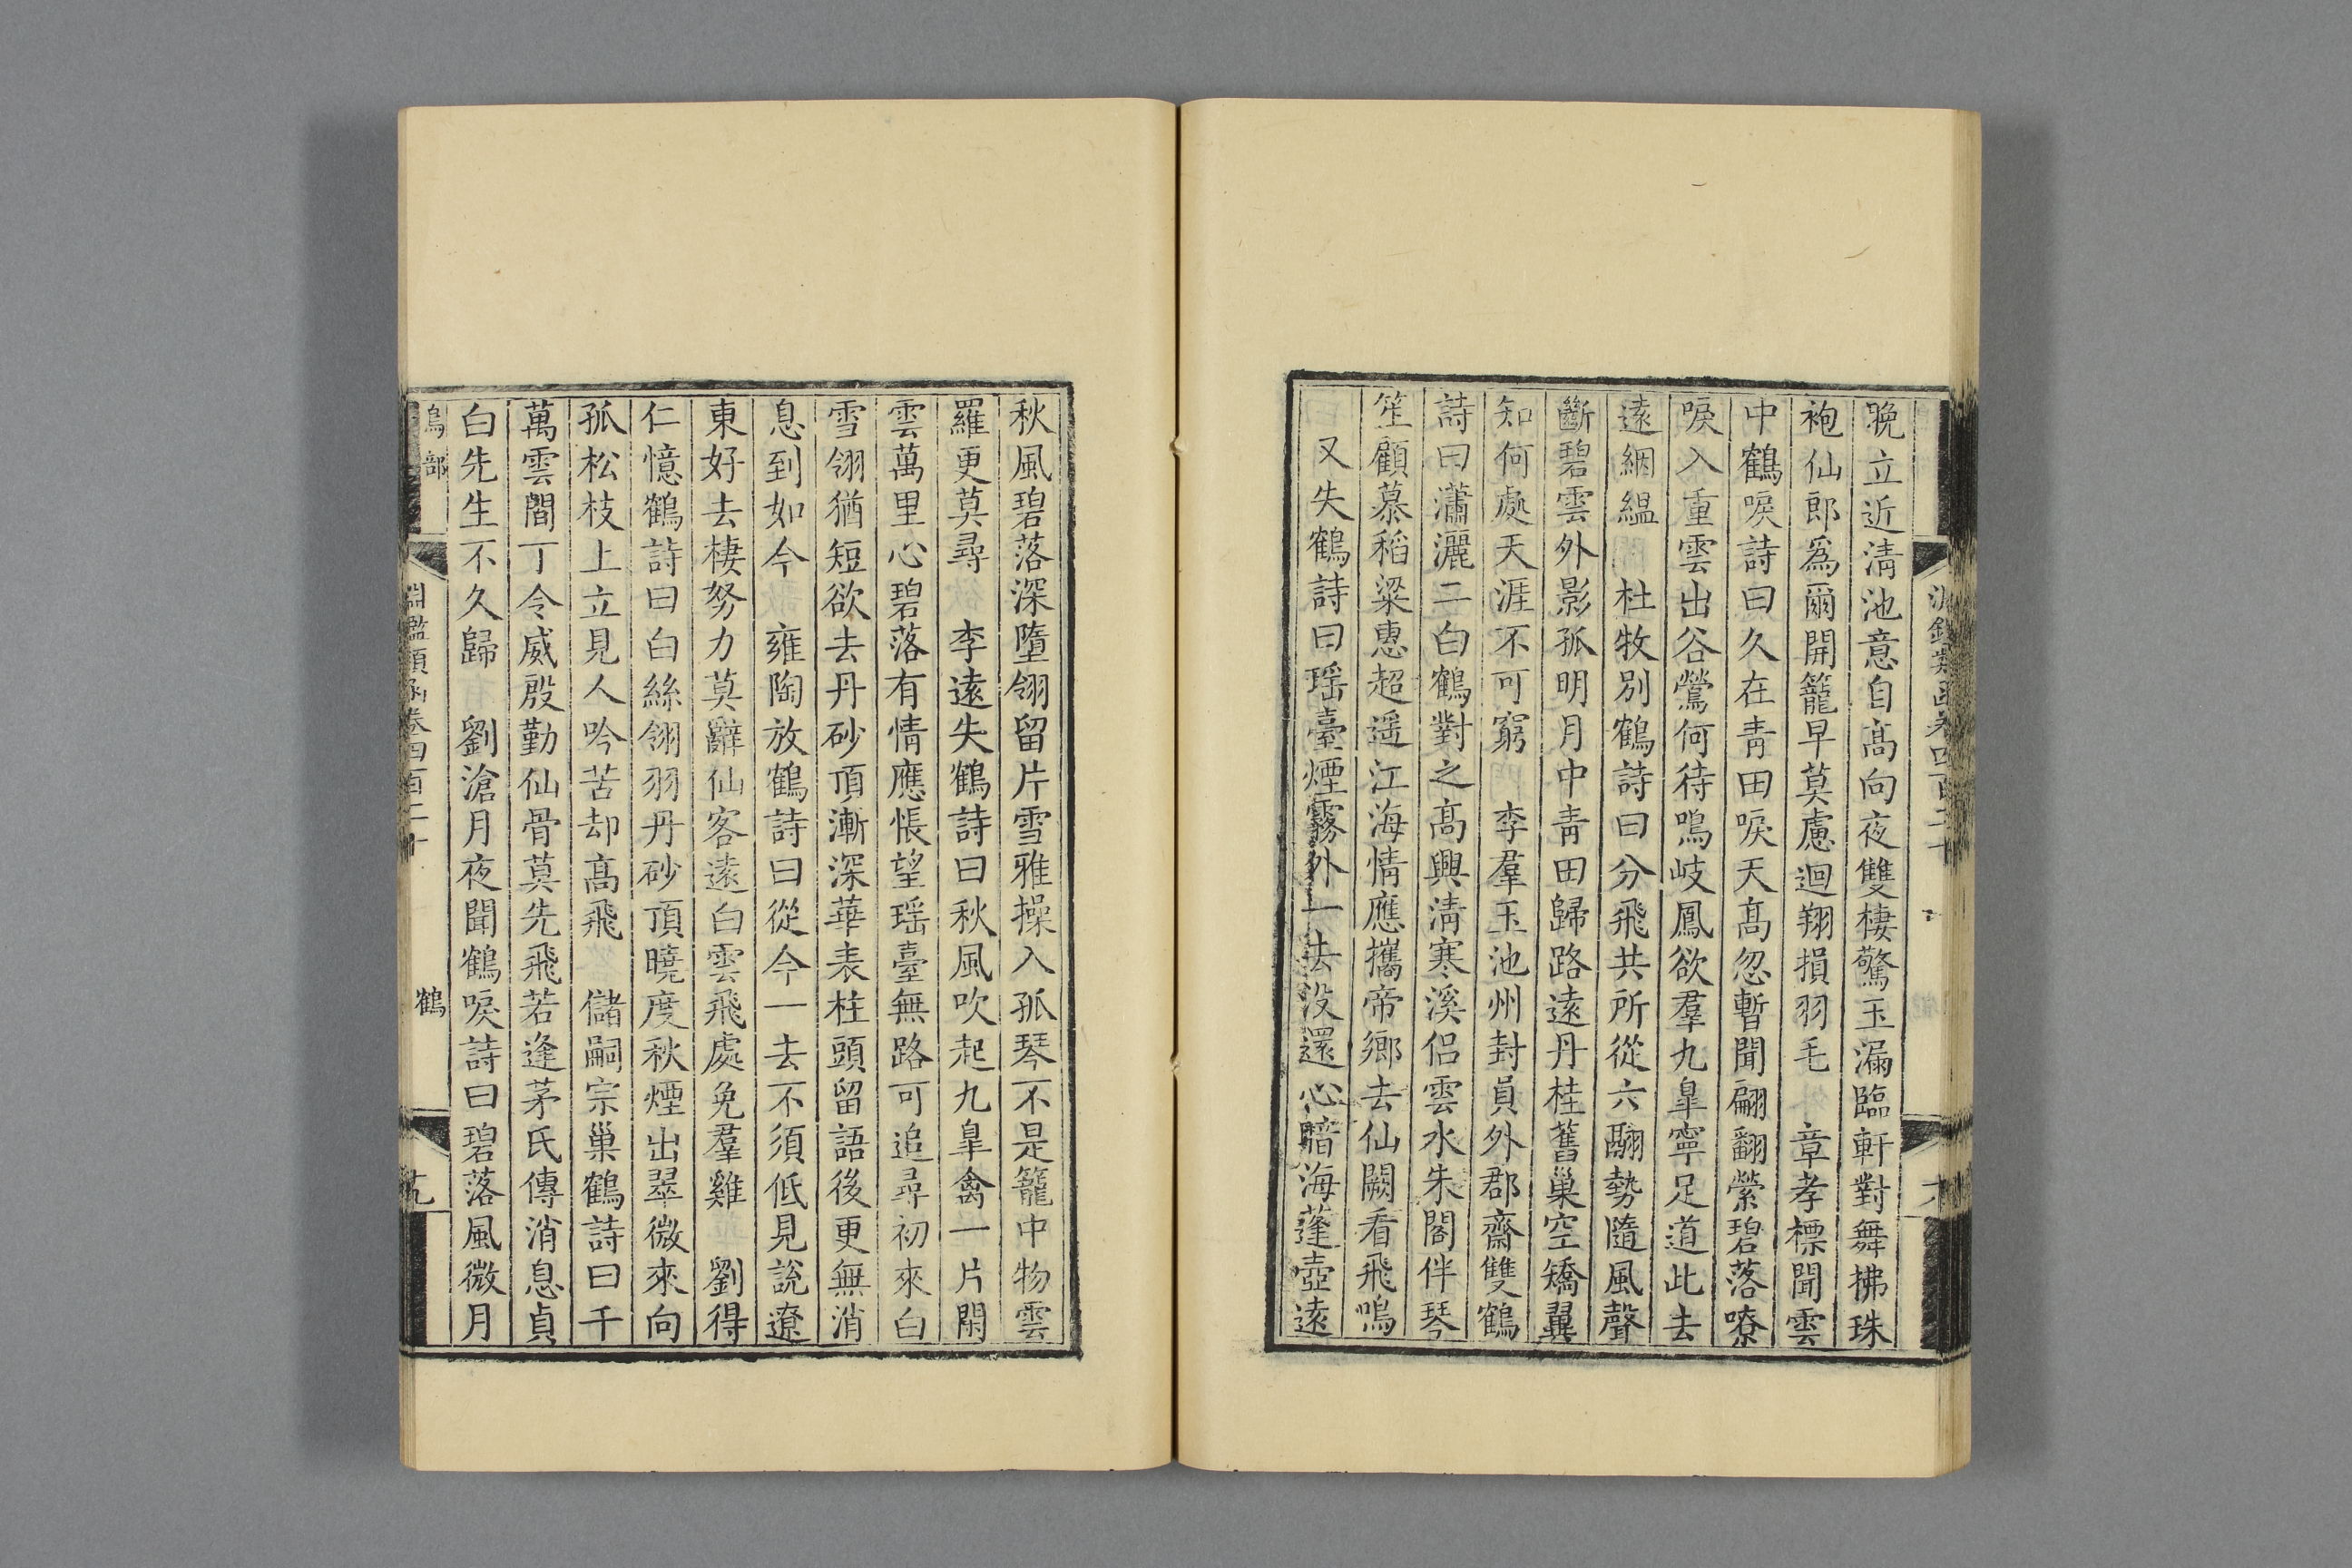 晩立近淸池意自髙向夜雙棲驚玉漏臨軒對舞拂珠
袍仙郎爲爾開籠早莫慮迴翔損羽毛 章孝標聞雲
中鶴唳詩曰久在靑田唳天髙忽暫聞翩翻縈碧落嘹
唳入重雲出谷鶯何待鳴岐鳳欲羣九臯寧足道此去
逺絪緼 杜牧别鶴詩曰分飛共所從六翮勢隨風聲
斷碧雲外影孤明月中靑田歸路逺丹桂舊巢空矯翼
知何處天涯不可窮 李羣玉池州封員外郡齋雙鶴
詩曰瀟灑二白鶴對之髙興淸寒溪侣雲水朱閣伴琴
笙顧慕稻粱惠超遥江海情應攜帝鄉去仙闕看飛鳴
又失鶴詩曰瑶臺煙霧外一去没還心賠海蓬壺逺
秋風碧落深墮翎留片雪雅操入孤琴不是籠中物雲
羅更莫尋 李逺失鶴詩曰秋風吹起九臯禽一片閑
雲萬里心碧落有情應悵望瑶臺無路可追尋初來白
雪翎猶短欲去丹砂頂漸深華表柱頭留語後更無消
息到如今 雍陶放鶴詩曰從今一去不須低見説遼
東好去棲努力莫辭仙客逺白雲飛處免羣雞 劉得
仁憶鶴詩曰白絲翎羽丹砂頂曉度秋煙出翠微來向
孤松枝上立見人吟苦却髙飛 儲嗣宗巢鶴詩曰千
萬雲間丁令威殷勤仙骨莫先飛若逢茅氏傳消息貞
白先生不久歸 劉滄月夜聞鶴唳詩曰碧落風微月
鳥部
淵鑑類函卷四百二十
鶴
九